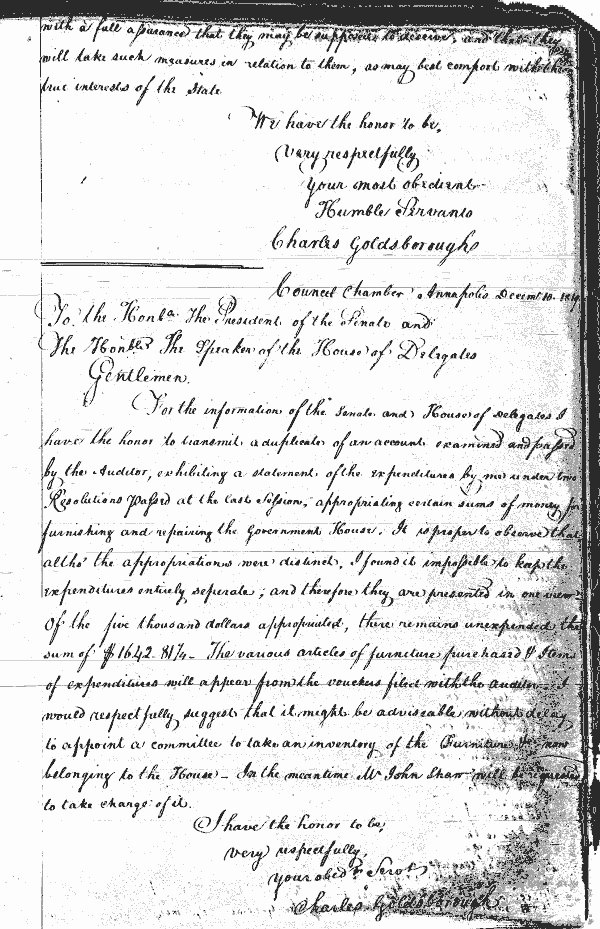 with a full assurance that they may be supposed to deserve, and that they
will take such measures in relation to them, as may best comport with the
true interests of the State
We have the honor to be,
Very respectfully
Your most obedient
Humble Servants
Charles Goldsborough
Council Chamber Annapolis Decemr. 10. 1819
To the Honble. The President of the Senate and
The Honble. The Speaker of the House of Delegates
Gentlemen.
For the information of the Senate and House of Delegates I
have the honor to transmit a duplicate of an account examined and passed
by the Auditor, exhibiting a statement of the expenditures by me under two
Resolutions passed at the last Session, appropriating certain sums of money for
furnishing and repairing the Government House. It is proper to observe that
altho' the appropriations were distinct, I found it impossible to keep the
expenditures entirely seperate; and therefore they are presented in one view.
Of the five thousand dollars appropriated, there remains unexpended the
sum of $1642.81¼ — The various articles of furniture purchased & Items
of expenditures will appear from the vouchers filed with the auditor — I
would respectfully suggest that it might be adviseable without delay
to appoint a committee to take an inventory of the Furniture &c. now
belonging to the House — In the meantime Mr. John Shaw will be requested
to take charge of it.
I have the honor to be,
very respectfully,
your obedt. Servt.
Charles Goldsborough.